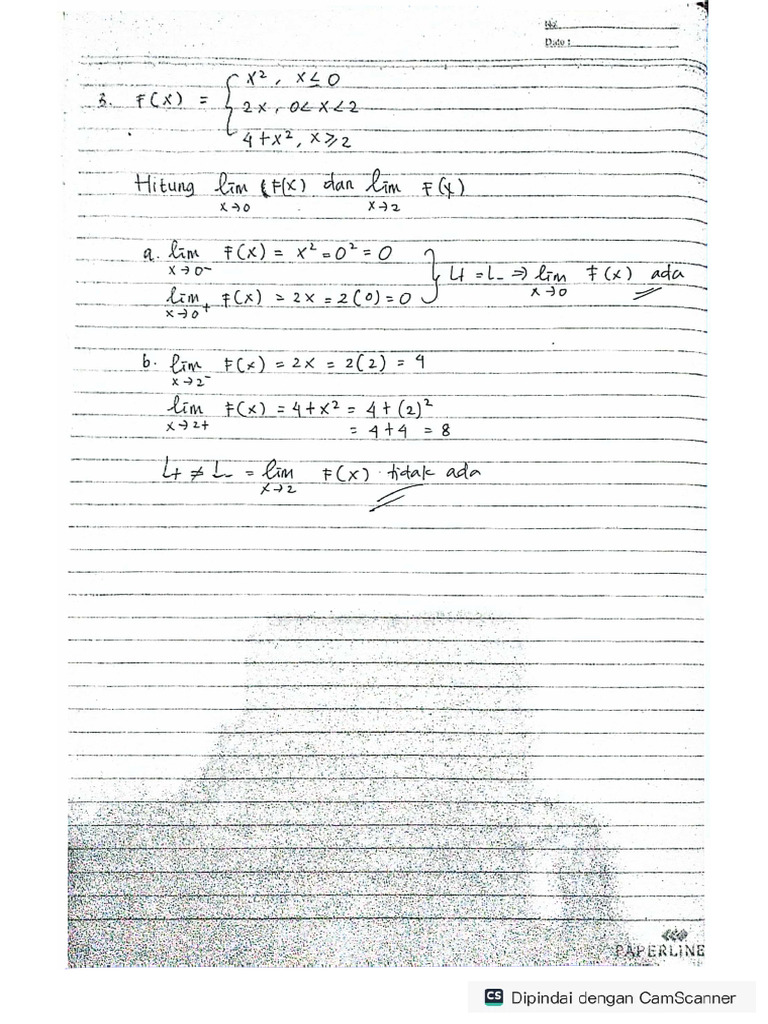 No.
Date :
3. F(x) = { x², x ≤ 0
2x, 0 < x < 2
4 + x², x ≥ 2
Hitung lim F(x) dan lim F(x)
x→0 x→2
a. lim F(x) = x² = 0² = 0
x→0⁻
lim F(x) = 2x = 2(0) = 0
x→0⁺
} L+ = L- ⇒ lim F(x) ada
x→0
b. lim F(x) = 2x = 2(2) = 4
x→2⁻
lim F(x) = 4 + x² = 4 + (2)²
x→2+
= 4 + 4 = 8
L+ ≠ L- = lim F(x) tidak ada
x→2
PAPERLINE
CS Dipindai dengan CamScanner